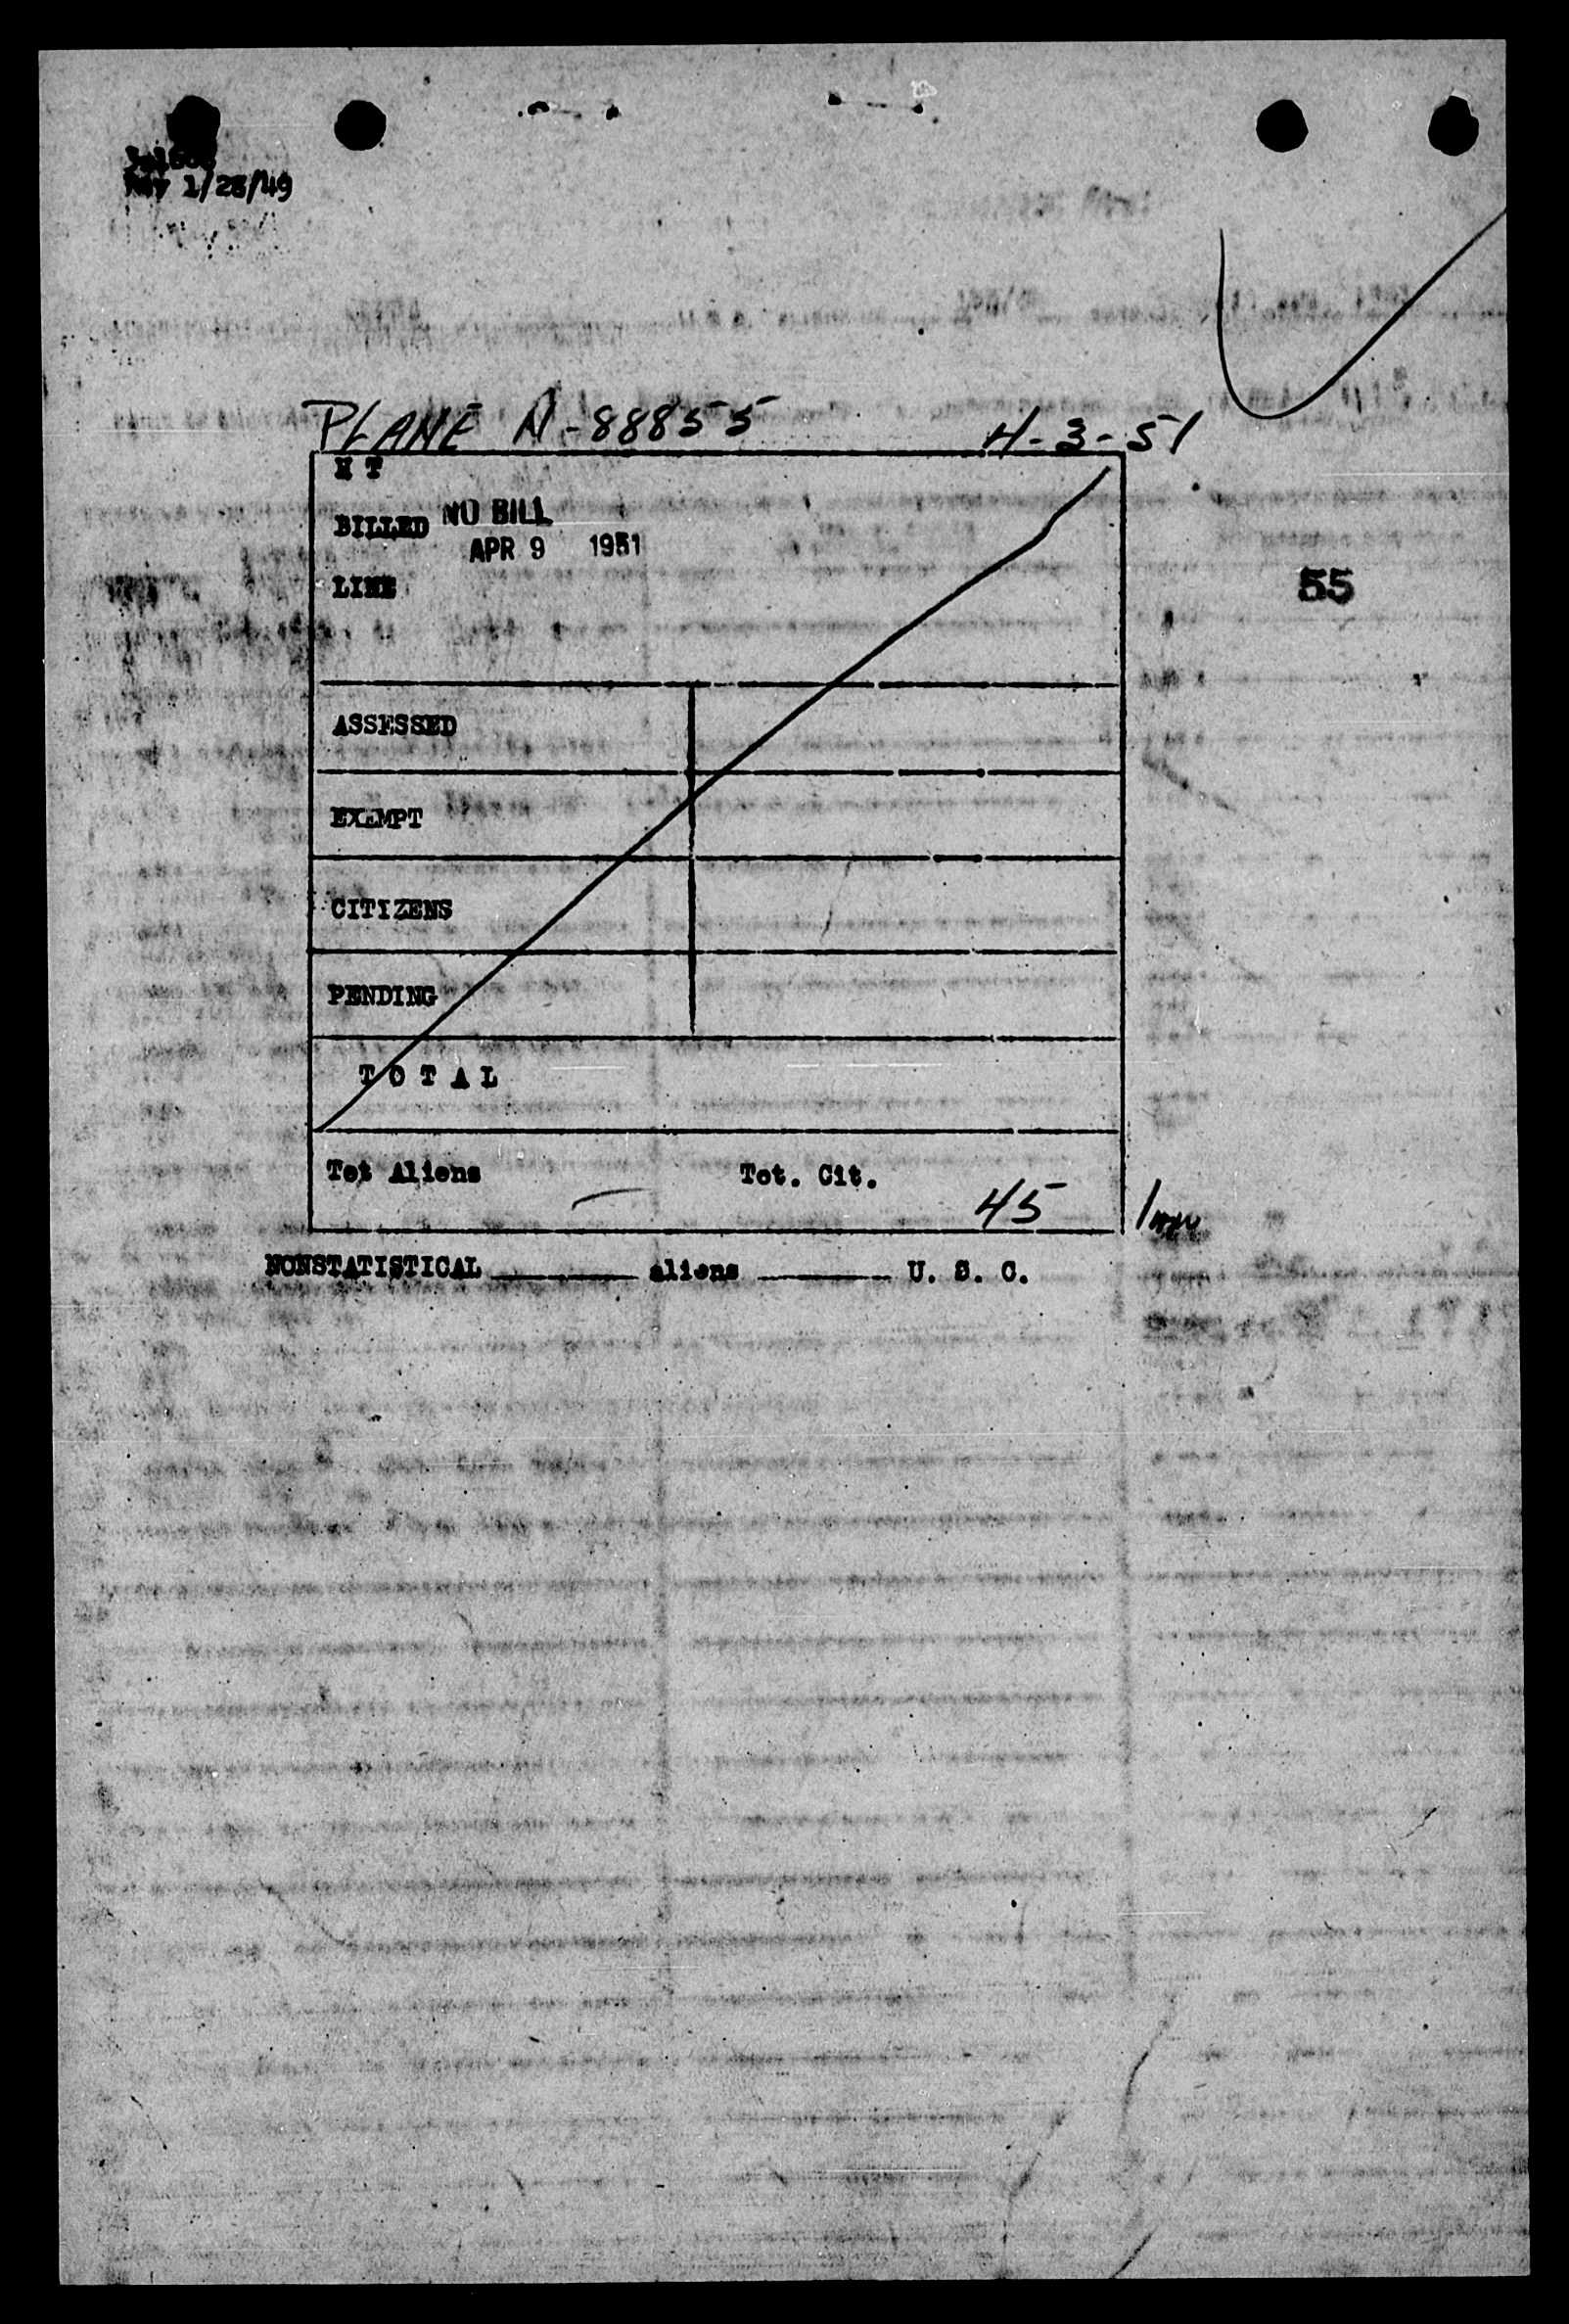 Rev 1/28/49
PLANE N-88855 4-3-51
H T
BILLED NO BILL
APR 9 1951
LINE
55
ASSESSED
EXEMPT
CITIZENS
PENDING
T O T A L
Tot Aliens — Tot. Cit. 45
NONSTATISTICAL ________ aliens ________ U. S. C.